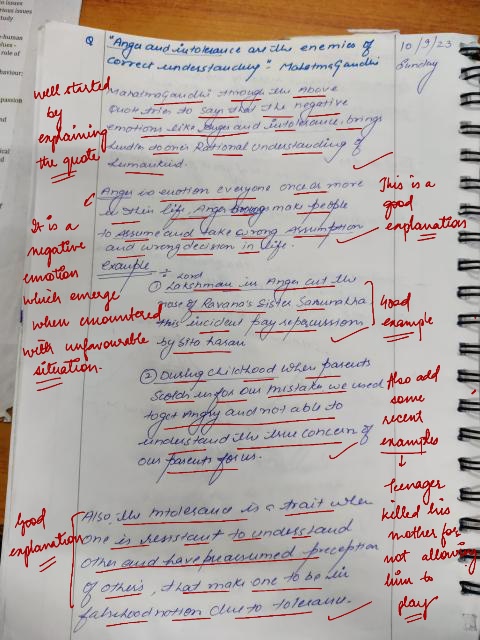 Q "Anger and intolerance are the enemies of
correct understanding" Mahatma Gandhi
10/9/23
Sunday
Mahatma Gandhi through the above
Quote tries to say that the negative
emotions like Anger and intolerance brings
hurdle to ones Rational understanding of
humankind.
well started
by
explaining
the quote
Anger is emotion everyone once or more
in their life, Anger brings make people
to assume and take wrong Assumption
and wrong decision in life.
It is a
negative
emotion
which emerge
when encountered
with unfavourable
situation.
This is a
good
explanation
Example :- Lord
① Lakshman in Anger cut the
nose of Ravana's Sister Sarunakha
this incident pay repercussion
by Sita haran
Good
example
② During childhood when parents
scolds us for our mistake we used
to get Angry and not able to
understand the true concern of
our parents for us.
Also add
some
recent
examples
↓
Teenager
killed his
mother for
not allowing
him to
play
Also, the intolerance is a trait when
one is resistant to understand
other and have preassumed preception
of others, that make one to be in
falsehood notion due to tolerance.
Good
explanation